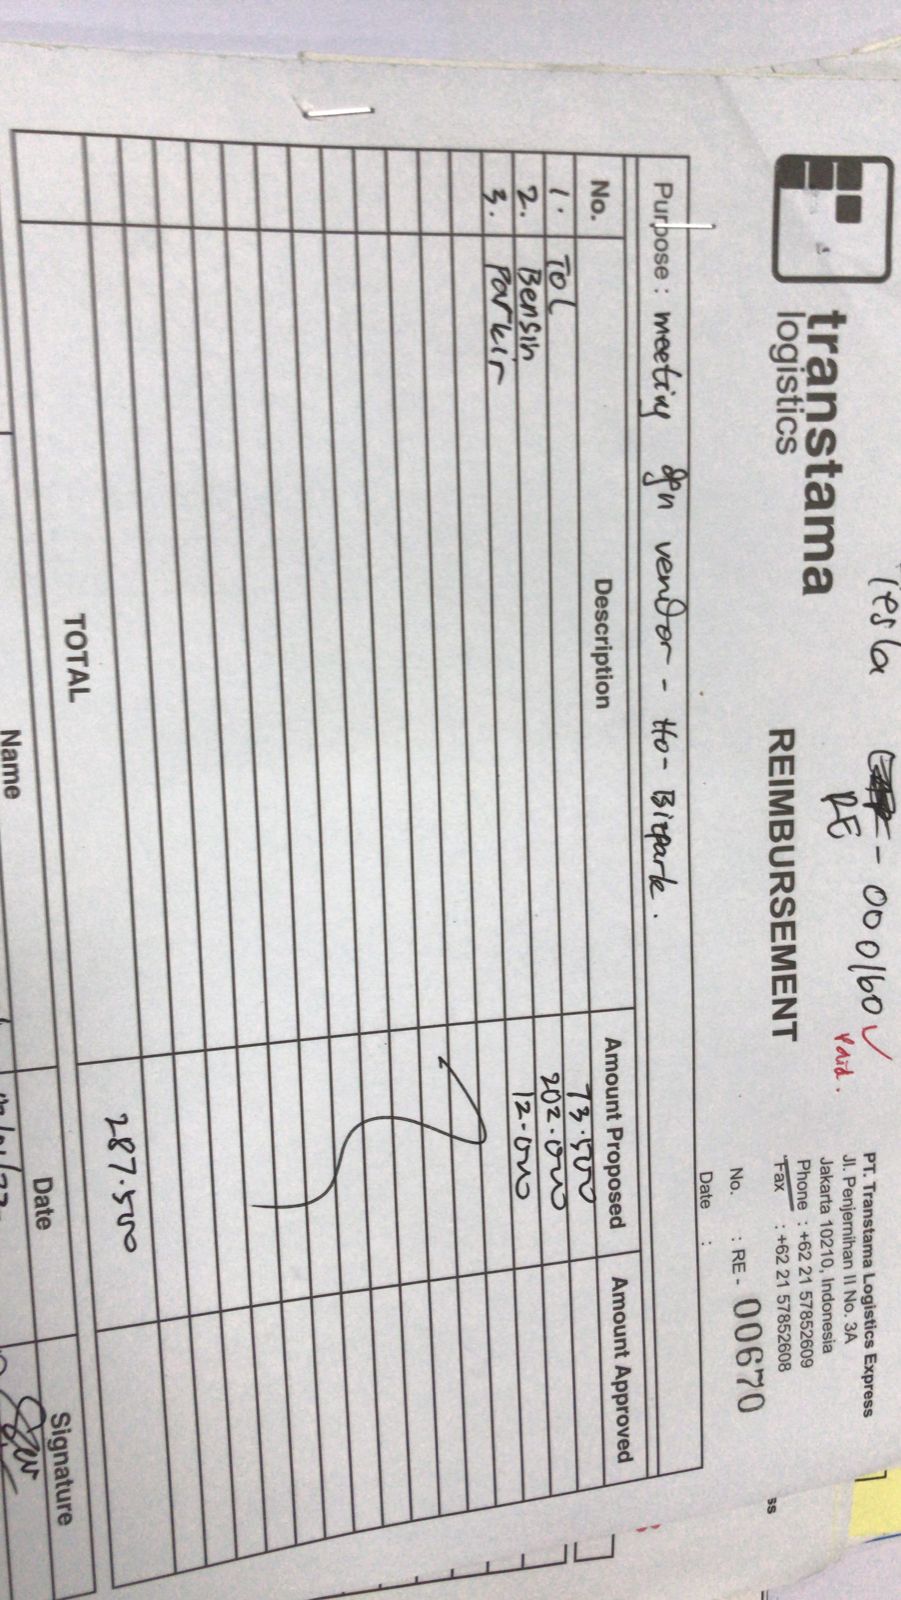 Tesla RE - 000160 ✓
Paid.
transtama
logistics
REIMBURSEMENT
PT. Transtama Logistics Express
Jl. Penjernihan II No. 3A
Jakarta 10210, Indonesia
Phone : +62 21 57852609
Fax : +62 21 57852608
No. : RE - 00670
Date :
Purpose : meeting dgn vendor - Ho - Bizpark.
No. Description Amount Proposed Amount Approved
1. TOL 73.500
2. Bensin 202.000
3. Parkir 12.000
TOTAL 287.500
Name Date Signature
ss